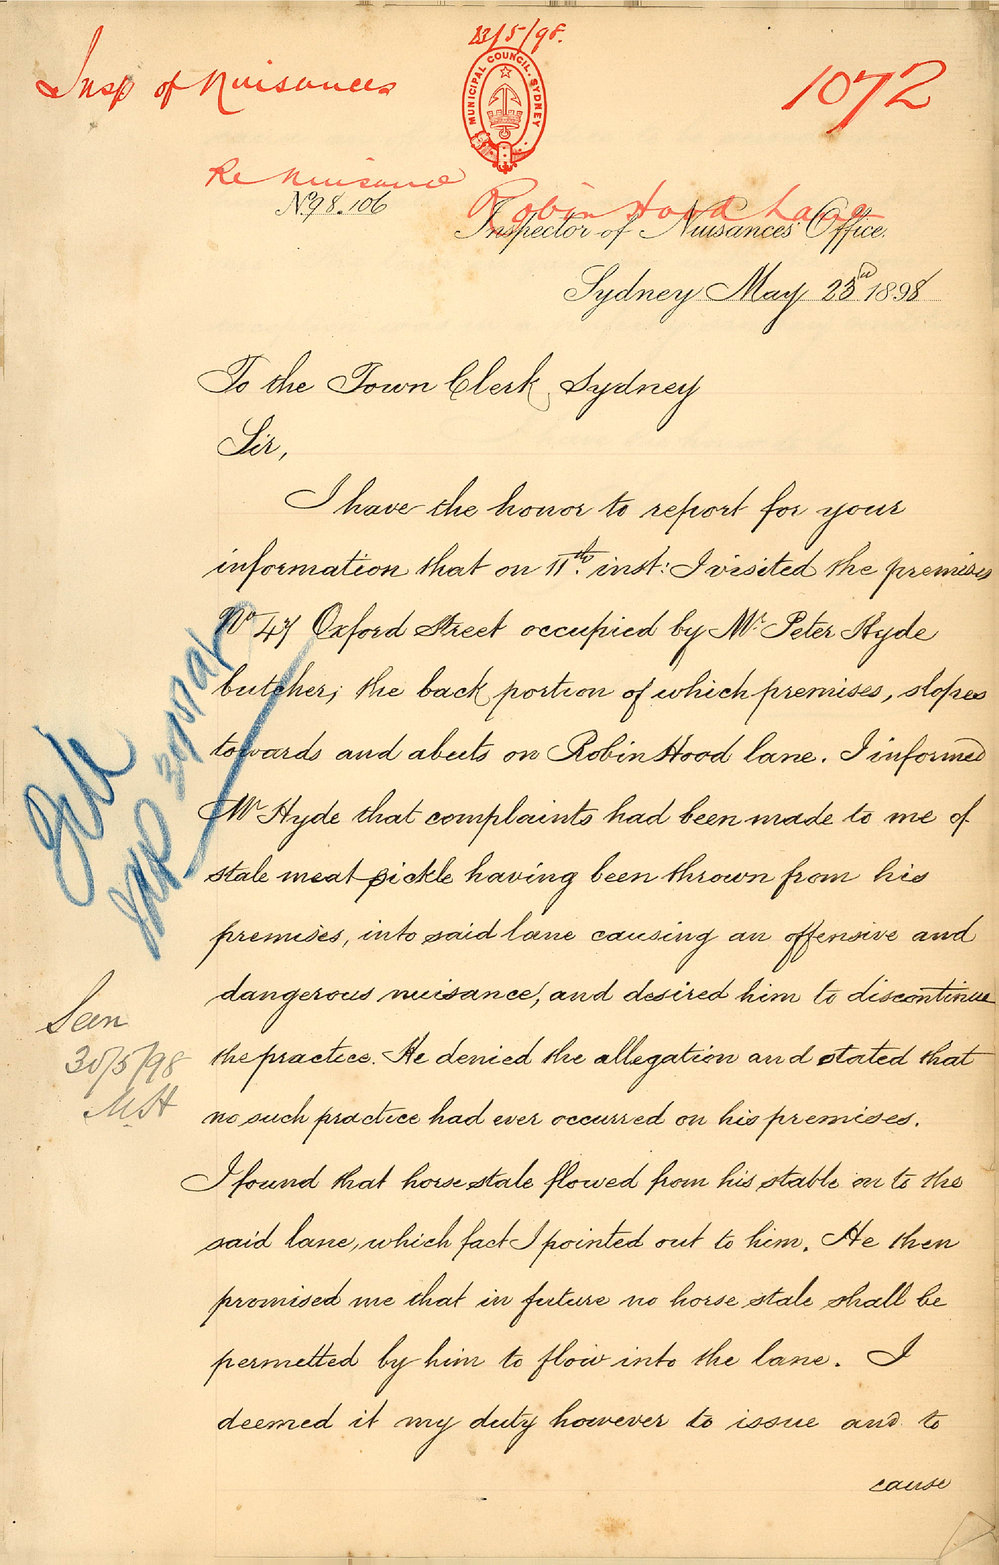 23/5/98.
Insp of Nuisances
MUNICIPAL COUNCIL. SYDNEY
1072
Re Nuisance
Robin Hood Lane
No 98.106
Inspector of Nuisances' Office.
Sydney May 23rd 1898
To the Town Clerk, Sydney
Sir,
I have the honor to report for your
information that on 11th. inst: I visited the premises
No 47 Oxford Street occupied by Mr. Peter Hyde
butcher; the back portion of which premises, slopes
towards and abuts on Robin Hood lane. I informed
Mr Hyde that complaints had been made to me of
stale meat pickle having been thrown from his
premises, into said lane causing an offensive and
dangerous nuisance, and desired him to discontinue
the practice. He denied the allegation and stated that
no such practice had ever occurred on his premises.
I found that horse stale flowed from his stable on to the
said lane, which fact I pointed out to him. He then
promised me that in future no horse stale shall be
permitted by him to flow into the lane. I
deemed it my duty however to issue and to
cause
Seen
30/5/98
MH